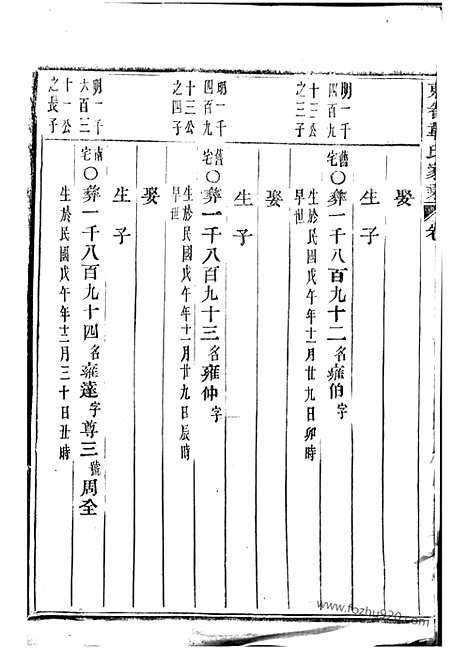 章氏家乘 卷
明一千
四百九
十三公
之三子
舊宅〇彝一千八百九十二名雍伯字
生於民國戊午年十一月廿九日卯時
早世
娶
生子
明一千
四百九
十三公
之四子
舊宅〇彝一千八百九十三名雍仲字
生於民國戊午年十一月廿九日辰時
早世
娶
生子
明一千
六百三
十一公
之長子
南宅〇彝一千八百九十四名雍達字尊三號周全
生於民國戊午年十二月三十日丑時
娶
生子
www.fozhu920.com